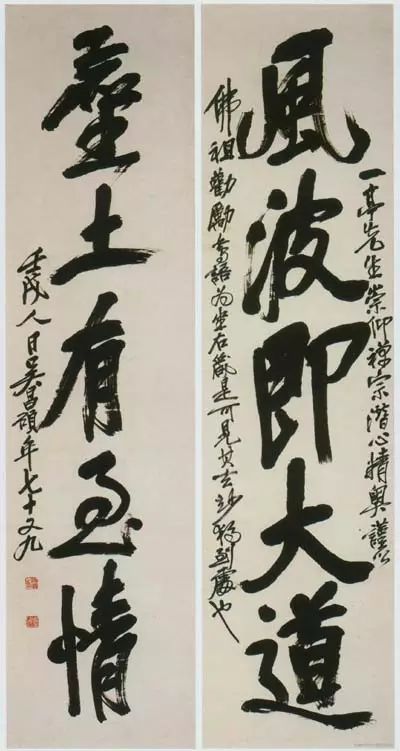 風波即大道
一亭先生崇仰禪宗潛心精奧謹以
佛祖勸勵語為坐右箴是可見其玄妙處也
塵土有至情
壬戌人日吳昌碩年七十又九